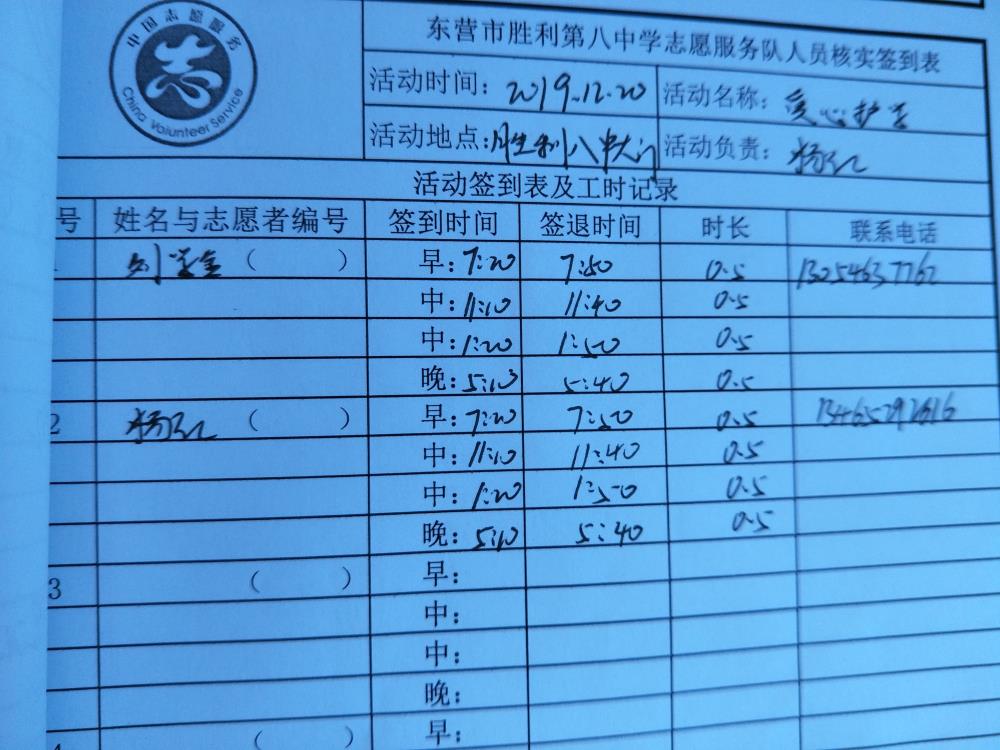 中国志愿服务
志
China Volunteer Service
东营市胜利第八中学志愿服务队人员核实签到表
活动时间：2019.12.20 活动名称：爱心护学
活动地点：胜利八中大门 活动负责：杨红
活动签到表及工时记录
号 姓名与志愿者编号 签到时间 签退时间 时长 联系电话
1 刘 （ ） 早：7:20 7:50 0.5 13054637762
中：11:10 11:40 0.5
中：1:20 1:50 0.5
晚：5:10 5:40 0.5
2 杨红 （ ） 早：7:20 7:50 0.5
中：11:10 11:40 0.5
中：1:20 1:50 0.5
晚：5:10 5:40 0.5
3 （ ） 早：
中：
中：
晚：
4 （ ） 早：